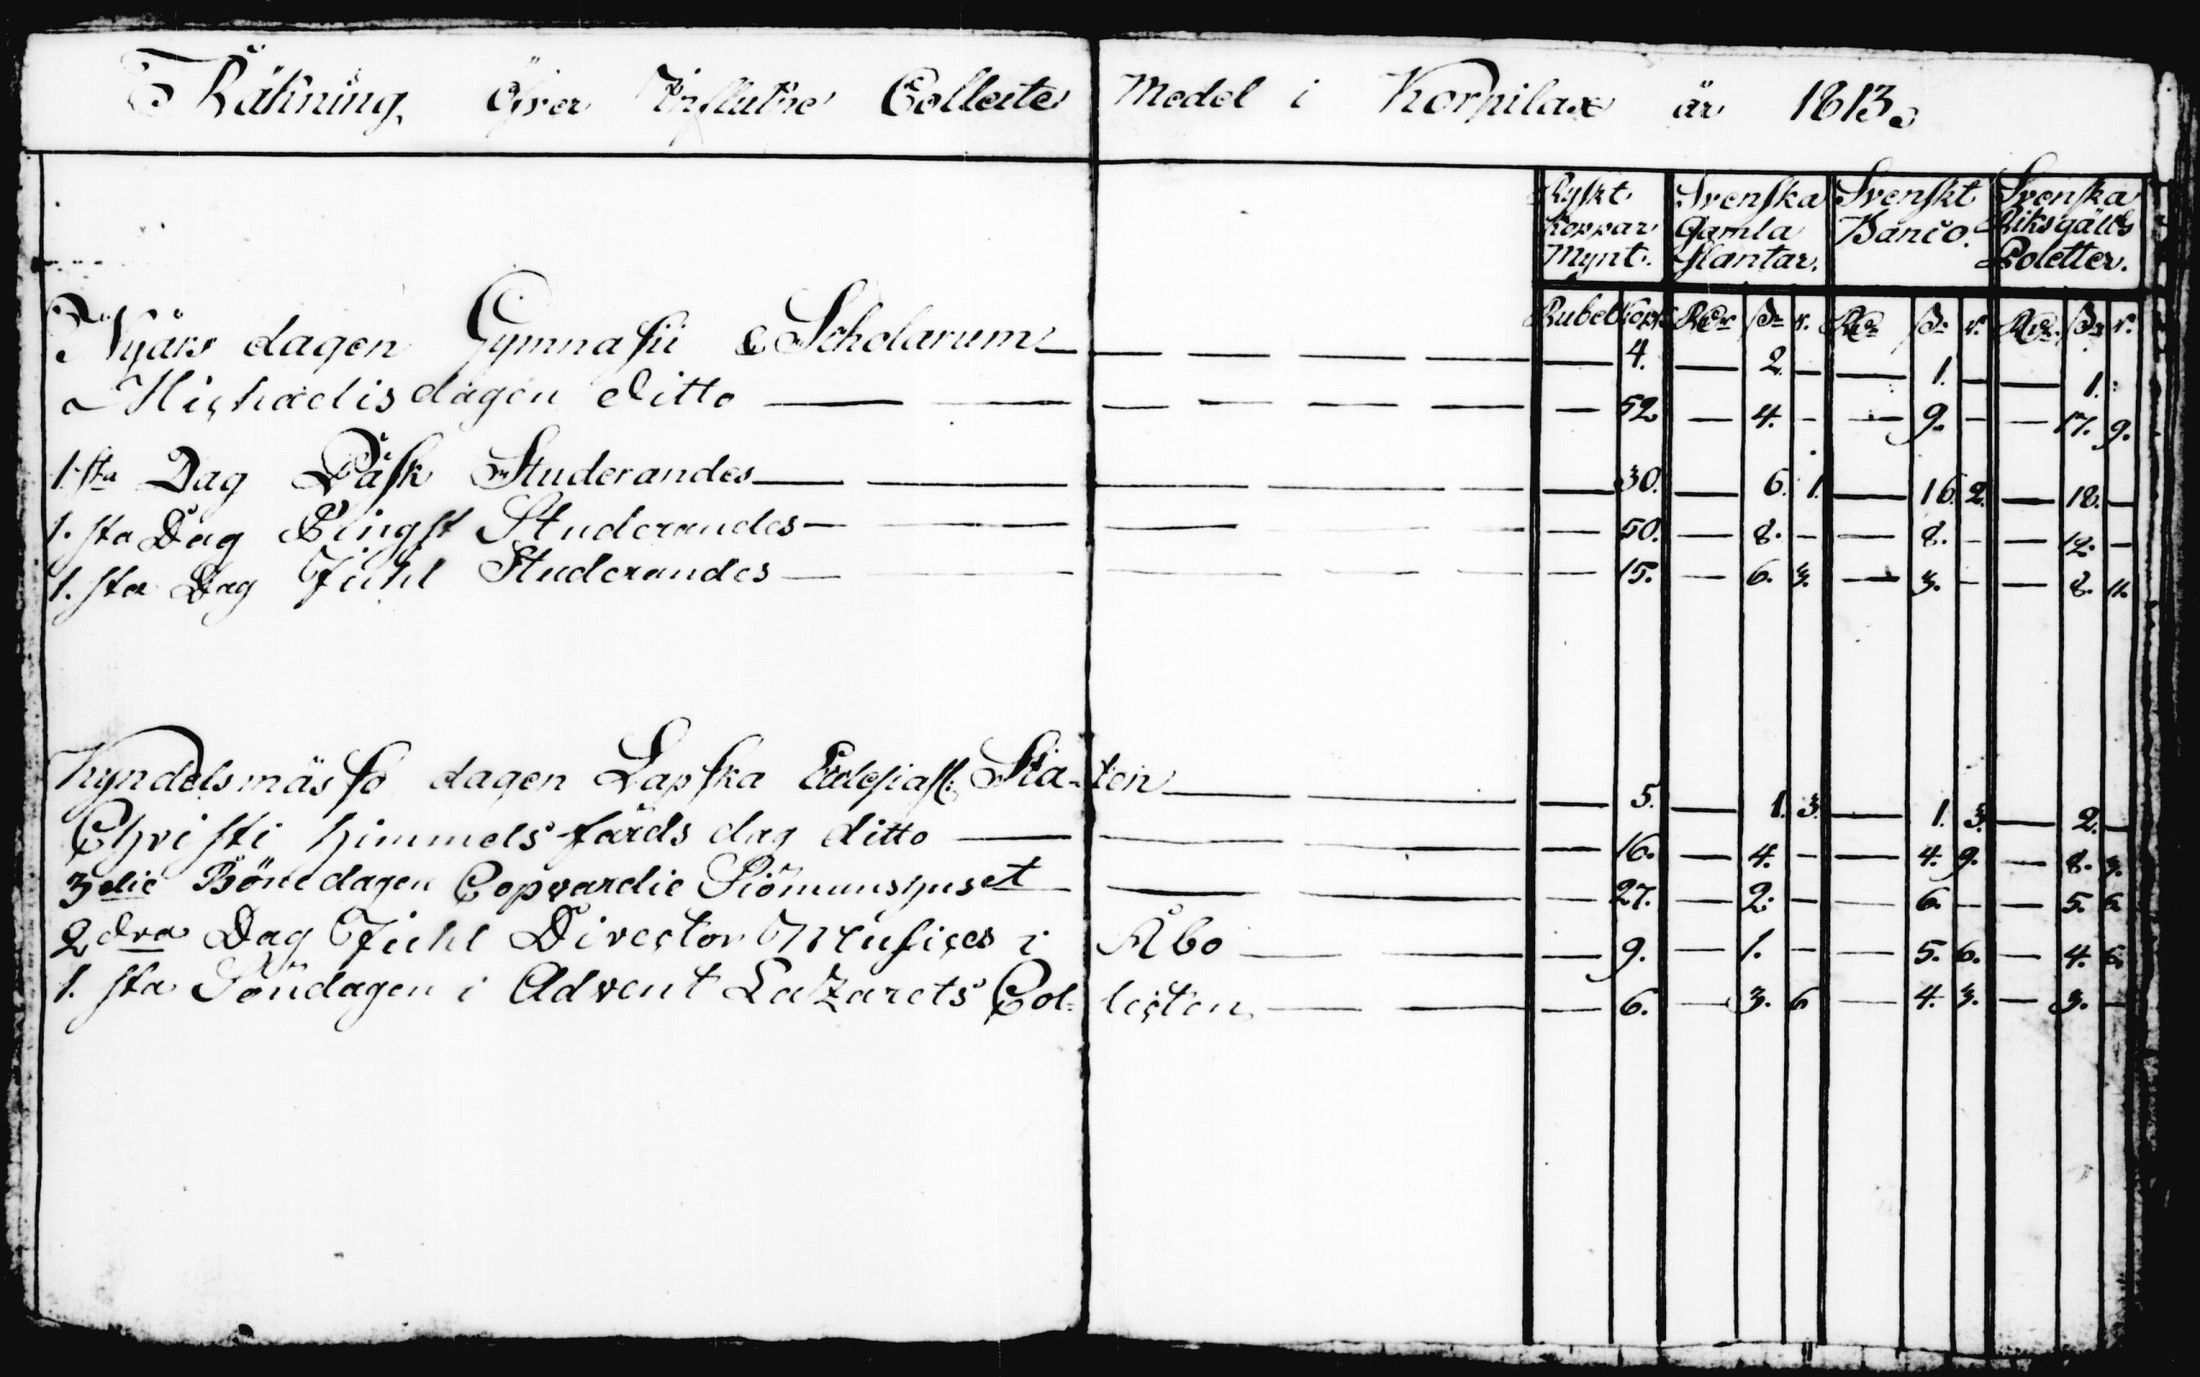 Räkning öfver Influtne Collecte Medel i Korpilax år 1813.
Ryskt Koppar Mynt. Svenska Gamla Slantar. Svenskt Banco. Svenska Riksgälds Poletter.
Rubel Kop: Rdr ß r. Rdr ß r. Rdr ß r.
Nyårs dagen Gymnasii & Scholarum — 4. — 2. — — 1. — — 1. -
Michaelis dagen ditto — 52 — 4. — — 9. — — 17. 9.
1.sta Dag Påsk Studerandes — 30. — 6. 1. — 16. 2. — 18. —
1.sta Dag Pingst Studerandes — 50. — 8. — — 8. — — 12. —
1.sta Dag Juhl Studerandes — 15. — 6. 3. — 3. — — 8. 11.
Kyndelsmässo dagen Lapska Ecclesiast: Sta-ten — 5. — 1. 3. — 1. 3. — 2. —
Christi himmelsfärds dag ditto — 16. — 4. — — 4. 9. — 8. 3.
3die Bönedagen Copvardie Siömanshuset — 27. — 2. — — 6. — — 5. 6.
2dra Dag Juhl Director Musices i Åbo — 9. — 1. — — 5. 6. — 4. 6.
1.sta Söndagen i Advent Lazarets Col-lecten — 6. — 3. 6 — 4. 3. — 3. —